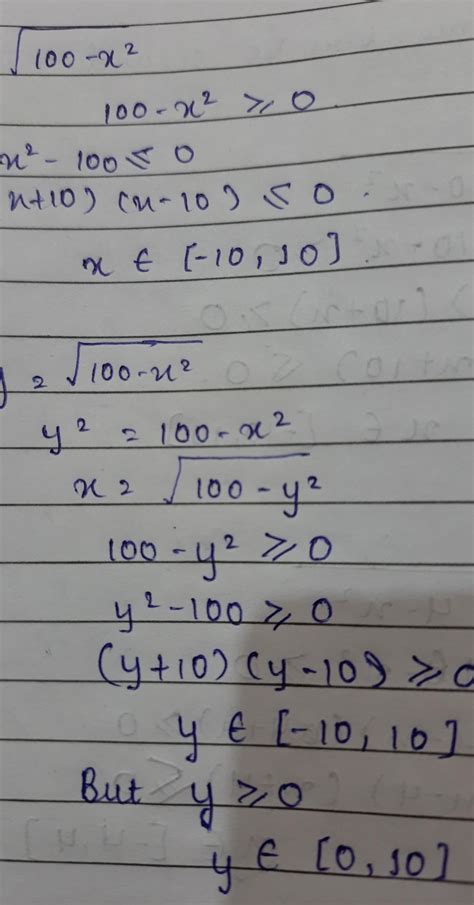 √100-x²
100-x² ≥ 0
x² - 100 ≤ 0
x+10) (x-10) ≤ 0.
x ∈ [-10, 10].
y = √100-x²
y² = 100-x²
x = √100-y²
100-y² ≥ 0
y²-100 ≥ 0
(y+10) (y-10) ≥ 0
y ∈ [-10, 10]
But y ≥ 0
y ∈ [0, 10]